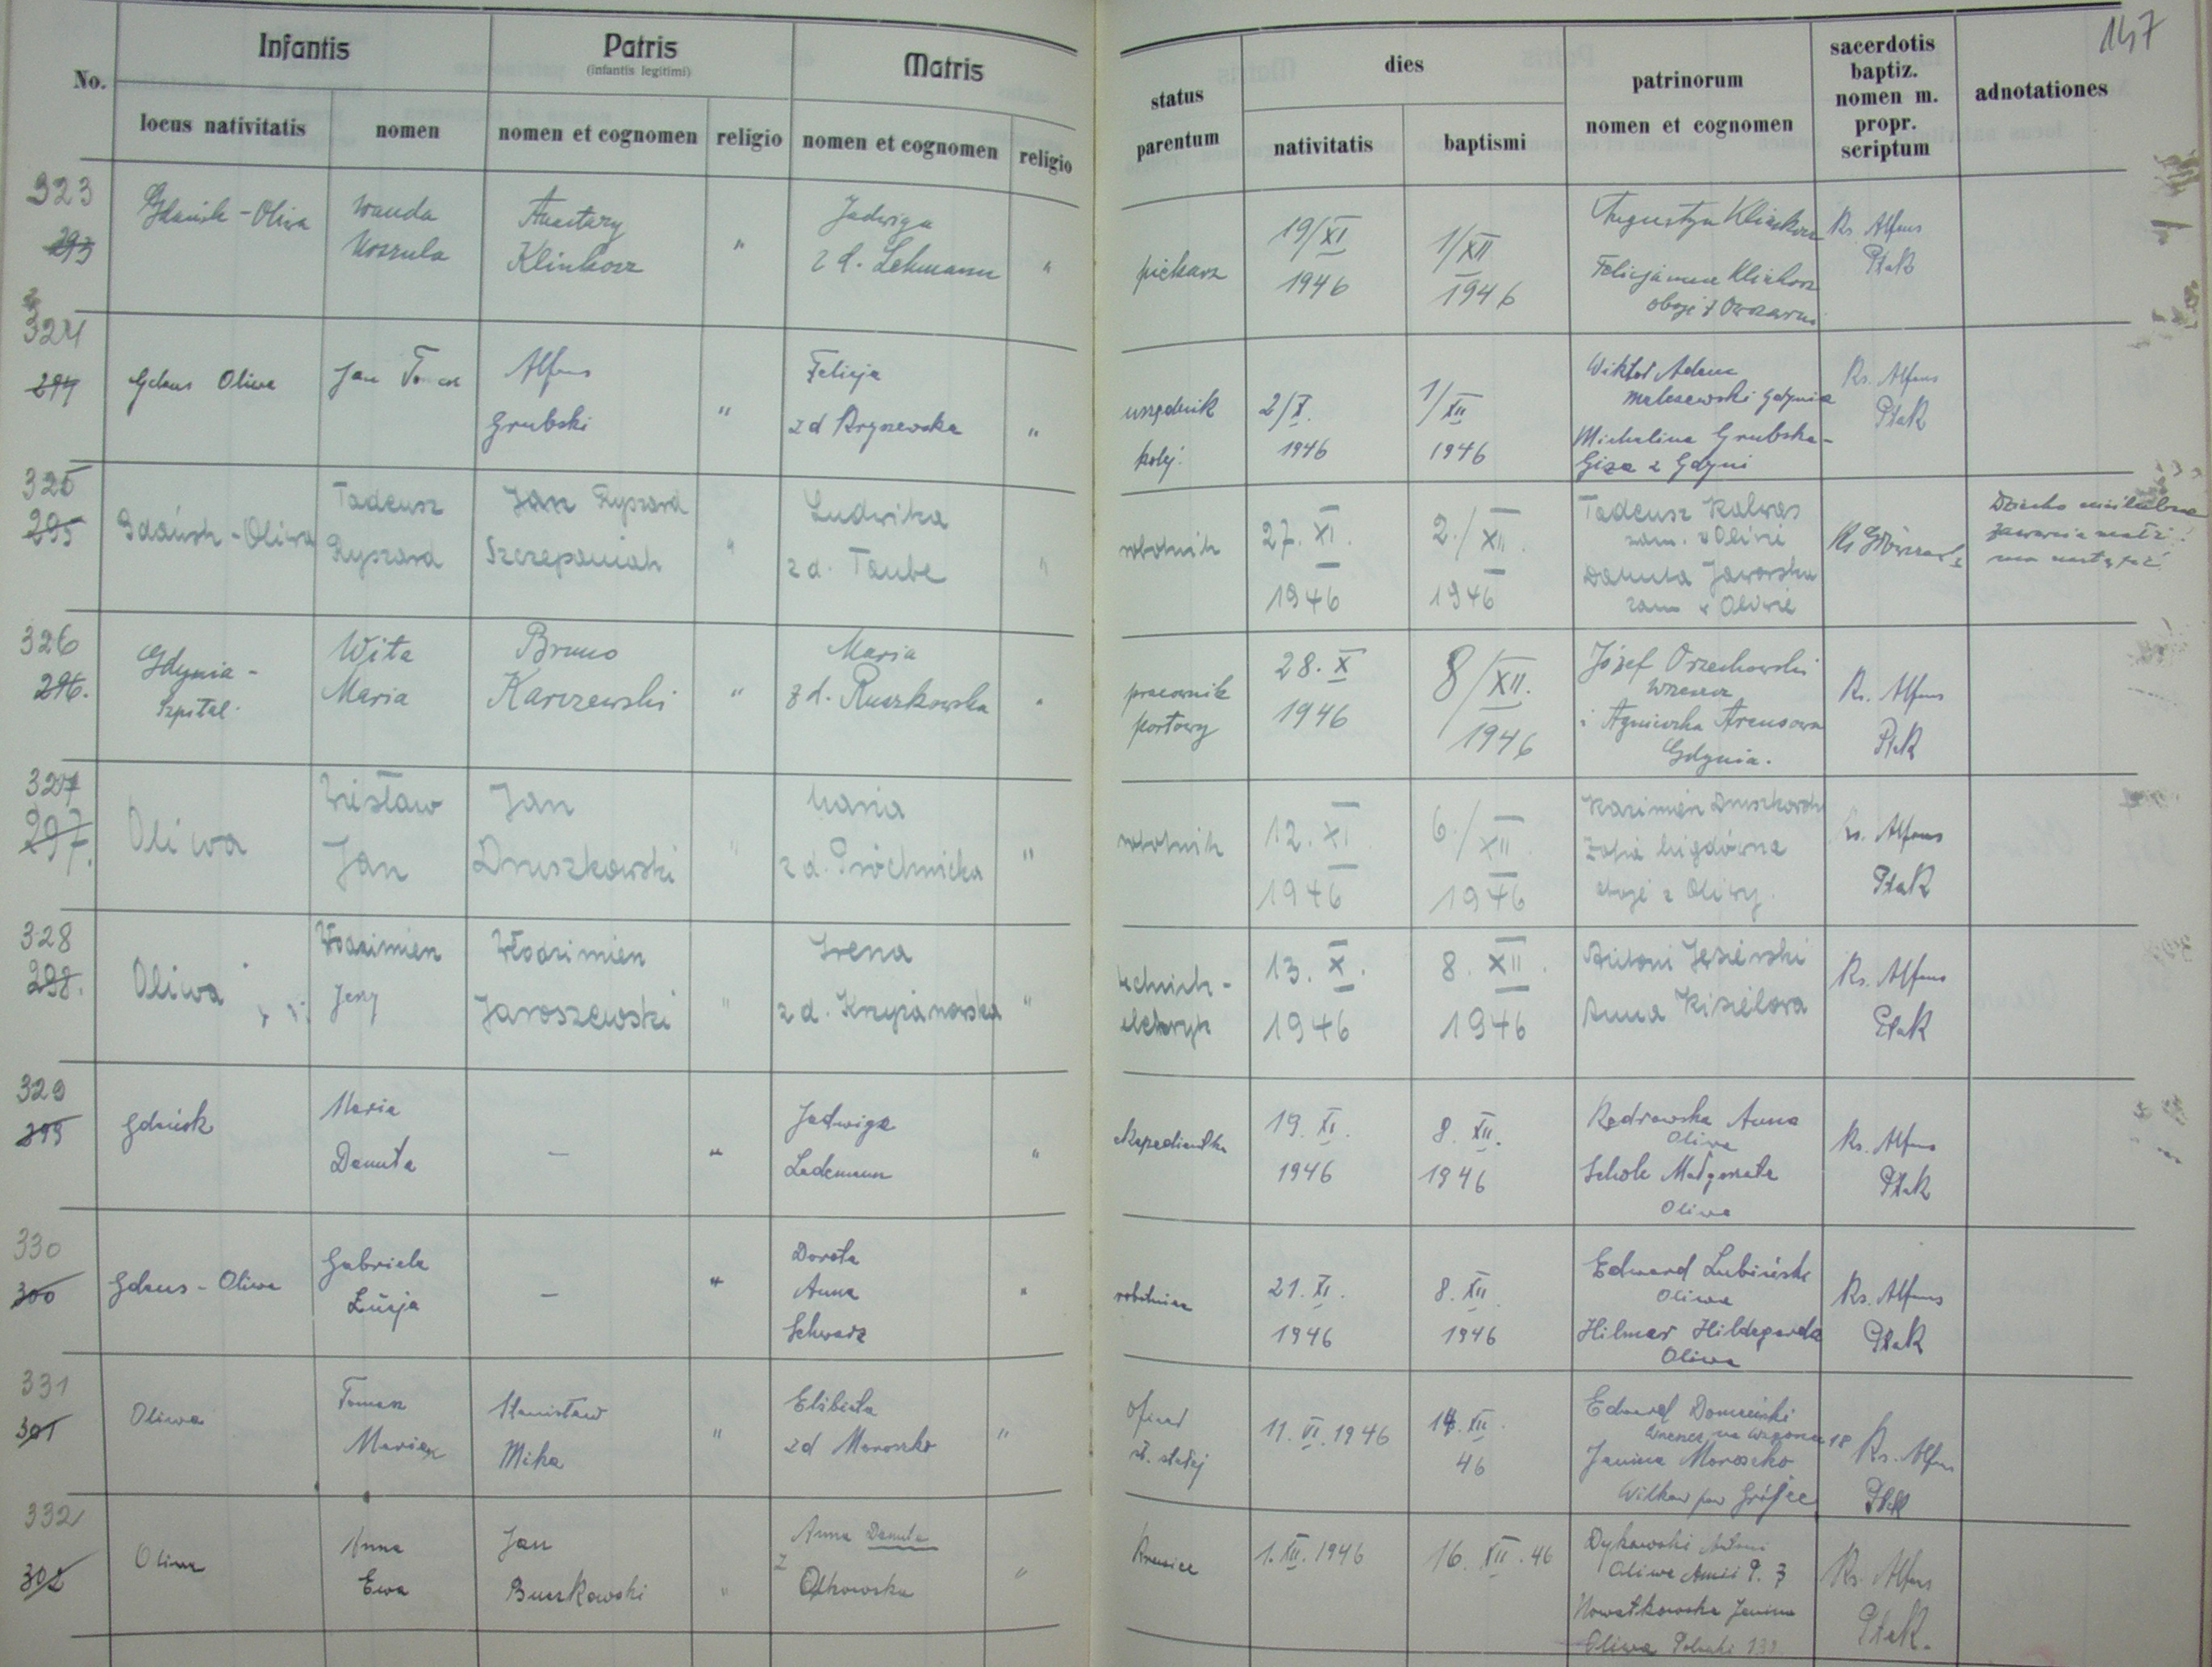 147
Infantis
Patris
(infantis legitimi)
Matris
No.
locus nativitatis
nomen
nomen et cognomen
religio
nomen et cognomen
religio
status
parentum
dies
nativitatis
baptismi
patrinorum
nomen et cognomen
sacerdotis
baptiz.
nomen m.
propr.
scriptum
adnotationes
323
293
Gdańsk - Oliwa
Wanda
Urszula
Anastazy
Klinkosz
"
Jadwiga
z d. Lehmann
"
piekarz
19/XI
1946
1/XII
1946
Augustyn Klinkosz
Felicjanna Klinkosz
oboje z Owczarni
Ks. Alfons
Ptak
324
294
Gdans Oliwa
Jan
Alfons
Grubski
"
Felicja
z d
"
urzędnik
kolej.
2/X.
1946
1/XII
1946
Wiktor Adam
Malszewski Gdynia
Michalina Grubska-
Giza z Gdyni
Ks. Alfons
Ptak
325
295
Gdańsk - Oliwa
Tadeusz
Ryszard
Jan Ryszard
Szczepaniak
"
Ludwika
z d. Taube
"
robotnik
27. XI.
1946
2./XII.
1946
Tadeusz Kalwas
zam. w Oliwie
Danuta Jaworska
zam w Oliwie
Ks
Dziecko nieślubne
326
296.
Gdynia -
Szpital.
Wita
Maria
Bruno
Karczewski
"
Maria
z d. Ruszkowska
"
pracownik
portowy
28. X
1946
8/XII.
1946
Józef Orzechowski
Wrzeszcz
i Agnieszka
Gdynia.
Ks. Alfons
Ptak
327
297.
Oliwa
Wiesław
Jan
Jan
Druszkowski
"
Maria
z d. Próchnicka
"
robotnik
12. XI
1946
6./XII.
1946
Kazimierz Druszkowski
Zofia Migdówna
oboje z Oliwy.
Ks. Alfons
Ptak
328
298.
Oliwa
Włodzimierz
Jerzy
Włodzimierz
Jaroszewski
"
Irena
z d. Krzyżanowska
"
technik -
elektryk
13. X.
1946
8. XII.
1946
Antoni Jęsierski
Anna Kisielowa
Ks. Alfons
Ptak
329
299
Gdańsk
Maria
Danuta
—
"
Jadwiga
Lademann
"
ekspedientka
19. XI.
1946
8. XII.
1946
Redrowska Anna
Oliwa
Schok Małgorzata
Oliwa
Ks. Alfons
Ptak
330
300
Gdans - Oliwa
Gabriela
Łucja
—
"
Dorota
Anna
Schwarz
"
robotnica
21. XI.
1946
8. XII.
1946
Edward Lubiński
Oliwa
Hilmar Hildegarda
Oliwa
Ks. Alfons
Ptak
331
301
Oliwa
Tomasz
Marian
Stanisław
Mika
"
Elżbieta
z d Moroszko
"
oficer
sł. stałej
11. VI. 1946
14. XII.
46
Edward
18
Janina Moroszko
Wilkow pow Grójec
Ks. Alfons
Ptak
332
302
Oliwa
Anna
Ewa
Jan
Buszkowski
"
Anna Danuta
z
"
1. XII. 1946
16. XII. 46
Dykowski Antoni
Oliwa Armii P. 3
Nowatkowska Janina
Oliwa Polanki
Ks. Alfons
Ptak.